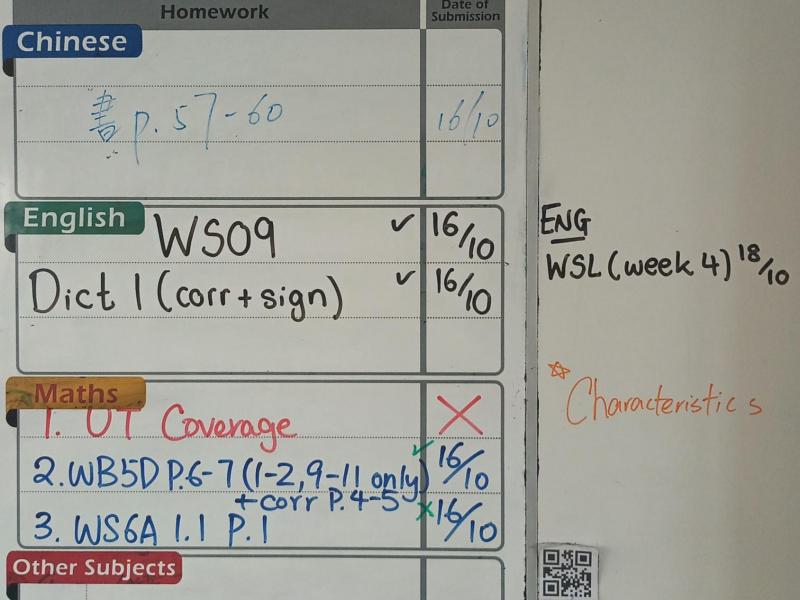 Homework
Date of
Submission
Chinese
書 p.57-60 16/10
English
WS09 ✓ 16/10
Dict 1 (corr + sign) ✓ 16/10
Maths
1. UT Coverage ✗
2. WB5D P.6-7 (1-2, 9-11 only) ✓ 16/10
+ corr P.4-5
3. WS6A 1.1 P.1 ✗ 16/10
Other Subjects
ENG
WSL (week 4) 18/10
☆ Characteristics